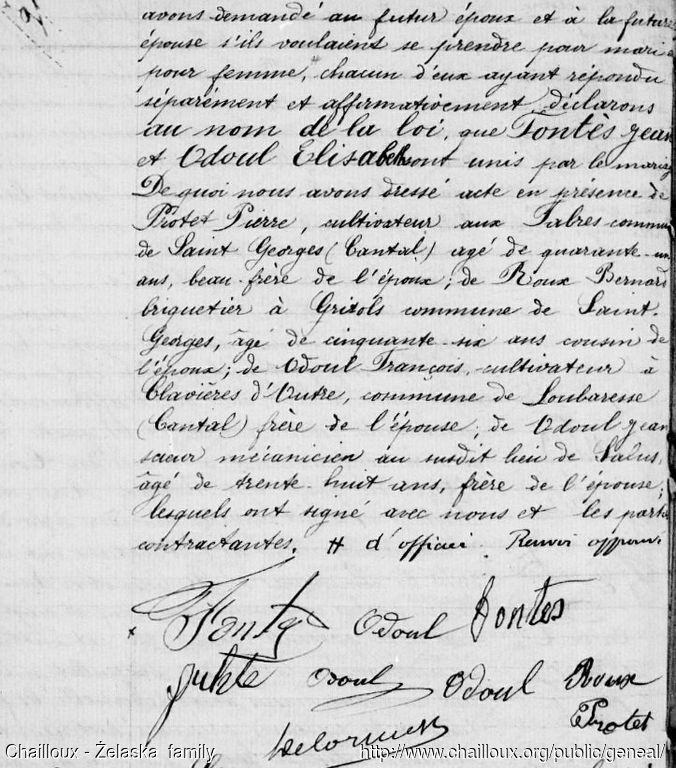 avons demandé au futur époux et à la future
épouse s'ils voulaient se prendre pour mari &
pour femme, chacun d'eux ayant répondu
séparément et affirmativement, déclarons
au nom de la loi, que Fontès Jean
et Odoul Elisabeth sont unis par le mariag
De quoi nous avons dressé acte en présence de
Protet Pierre, cultivateur aux Fabres commun
de Saint Georges (Cantal) agé de quarante-un
ans, beau-frère de l'époux; de Roux Bernard
briquetier à Grizols commune de Saint-
Georges, âgé de cinquante-six ans cousin de
l'époux; de Odoul François, cultivateur à
Clavières d'Outre, commune de Loubaresse
(Cantal) frère de l'épouse; de Odoul Jean
mécanicien au susdit lieu de
âgé de trente-huit ans, frère de l'épouse;
lesquels ont signé avec nous et les parti
contractantes. # d'office Renvoi
Odoul Fontès
Odoul Odoul Roux
Protet
Chailloux - Żelaska family http://www.chailloux.org/public/geneal/